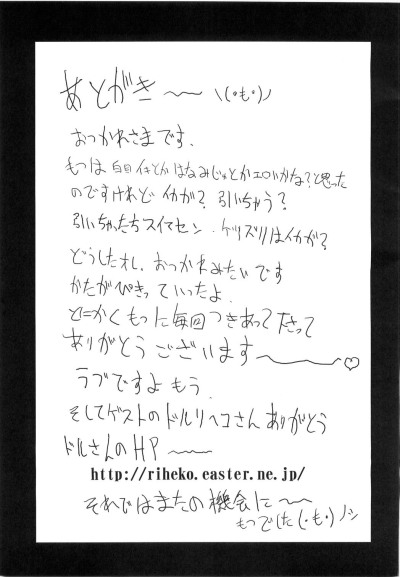 あとがき～～ \(・も・)ノ
おつかれさまです、
もつは白目イキとかはなみじゅとかエロいかな？と思った
のですけれどイカが？引いちゃう？
引いちゃったらスイマセン．ケツズリはイカが？
どうしたオレ、おつかれみたいです
かたがぴきっていったよ．
とにかくもつに毎回つきあって下さって
ありがとうございます～～♡
ラブですよもう．
そしてゲストのドルリヘコさんありがとう
ドルさんのHP～～
http://riheko.easter.ne.jp/
それではまたの機会に～～
もつでした(・も・)ノシ